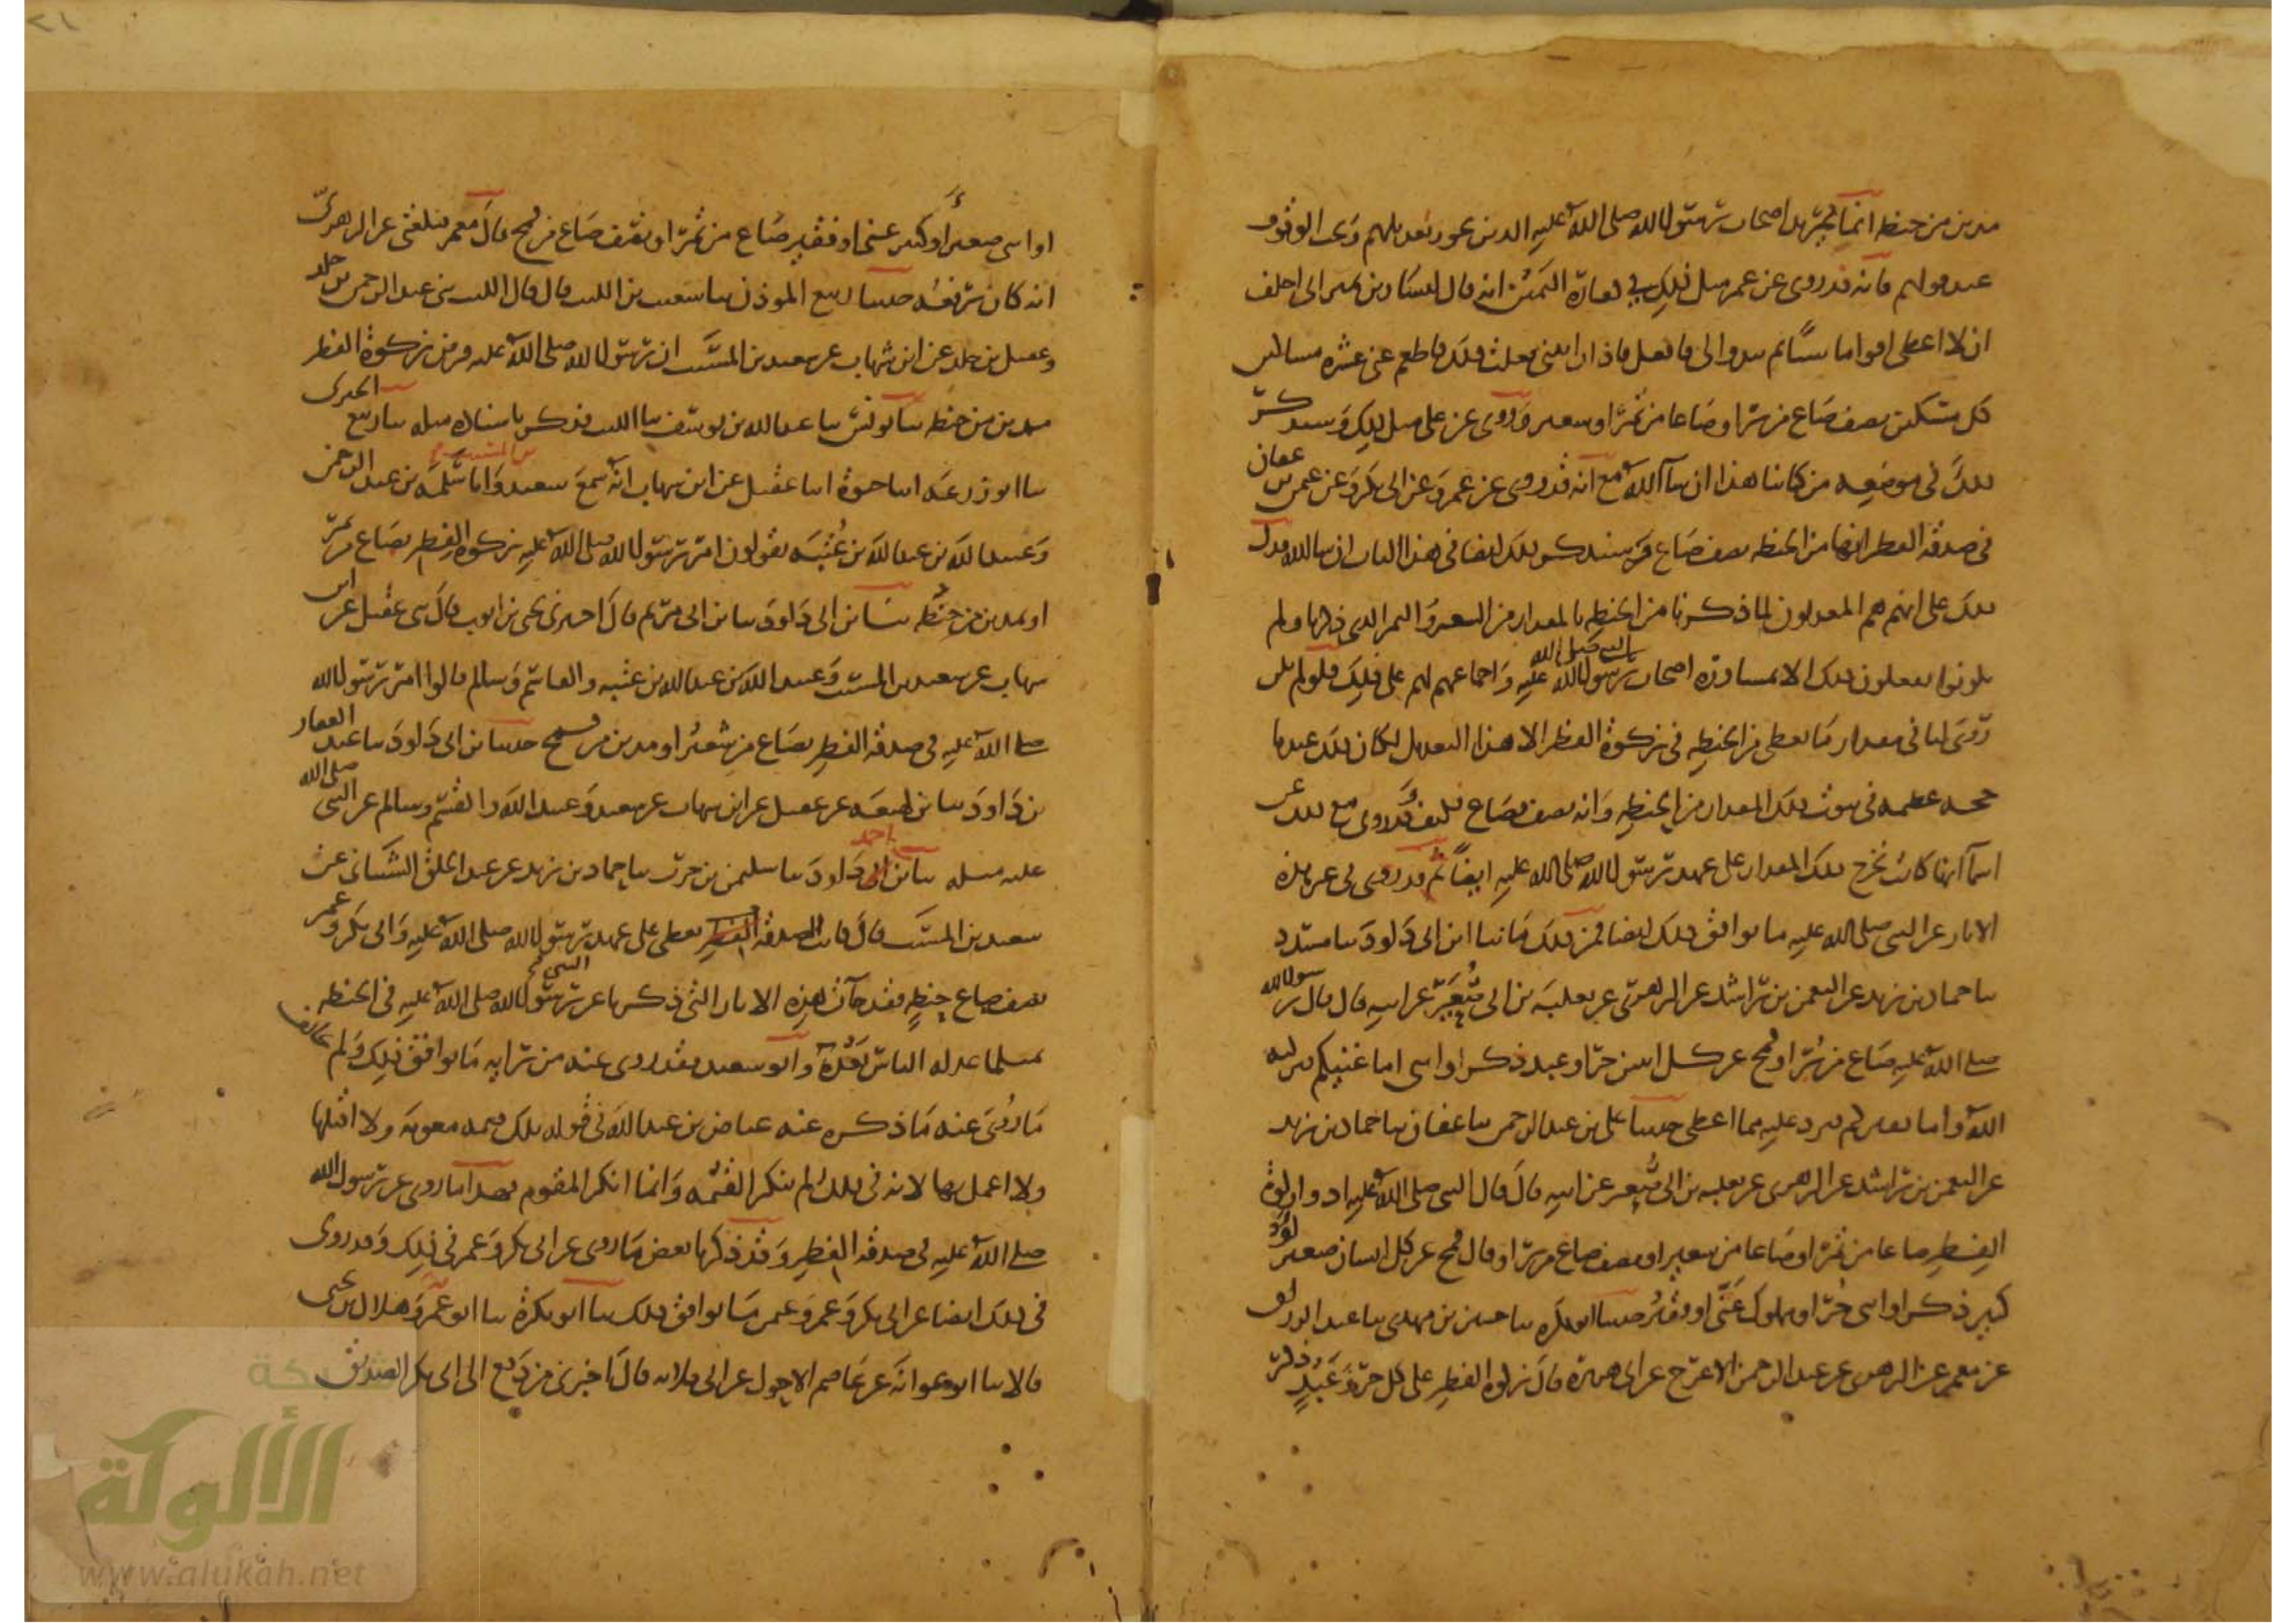 مدين من حنطه انما تجرته اصحاب رسول الله صلى الله عليه الذين يجوز تعديلهم ويجب الوقوف
عند قولهم فانه قد روى عن عمر مثل ذلك في كفارة اليمين انه قال ليسار بن نمير انى احلف
ان لا اعطى اقواما شيئا ثم يبدوا لى فافعل فاذا رايتنى فعلت ذلك فاطعم عنى عشرة مساكين
كل مسكين نصف صاع من بر او صاعا من تمر او شعير وروى عن على مثل ذلك وسنذكر
ذلك في موضعه من كتابنا هذا ان شا الله مع انه قد روى عن عمر وعن ابى بكر وعن عثمن بن عفان
في صدقة الفطر انها من الحنطه نصف صاع وسنذكر ذلك ايضا في هذا الباب ان شا الله فدل
ذلك على انهم هم المعدلون لما ذكرنا من الحنطه بالمقدار من الشعير والتمر الذى ذكرنا ولم
يكونوا يفعلون ذلك الا بمشاورة اصحاب رسول الله صلى الله عليه واجماعهم لهم على ذلك فلو لم يكن
روى لنا في مقدار ما يعطى من الحنطه في زكوة الفطر الا هذا التعديل لكان ذلك عندنا
حجه عظيمه في ثبوت ذلك المقدار من الحنطه وانه نصف صاع فكيف وقد روى مع ذلك عن
اسما انها كانت تخرج ذلك المقدار على عهد رسول الله صلى الله عليه ايضا ثم قد روى في غير هذه
الاثار عن النبى صلى الله عليه ما يوافق ذلك ايضا فمن ذلك ما نبا ابن ابى داود نبا مسدد
نبا حماد بن زيد عن النعمن بن راشد عن الزهرى عن ثعلبه بن ابى صعير عن ابيه قال قال رسول الله
صلى الله عليه صاع من بر او قمح عن كل اثنين حر او عبد ذكر او انثى اما غنيكم فيزكيه
الله واما فقيركم فيرد عليه مما اعطى حدثنا على بن عبد الرحمن نبا عفان نبا حماد بن زيد
عن النعمن بن راشد عن الزهرى عن ثعلبه بن ابى صعير عن ابيه قال قال النبى صلى الله عليه ادوا زكوة
الفطر صاعا من تمر او صاعا من شعير او نصف صاع من بر او قال قمح عن كل انسان صغير او
كبير ذكر او انثى حر او مملوك غنى او فقير حدثنا ابو بكره نبا حسين بن مهدى نبا عبد الرزاق
عن معمر عن الزهرى عن عبد الرحمن الاعرج عن ابى هريرة قال زكوة الفطر على كل حر وعبد ذكر
او انثى صغير او كبير غنى او فقير صاع من تمر او نصف صاع من قمح قال معمر فبلغنى عن الزهرى
انه كان يرفعه حدثنا ربيع الموذن نبا شعيب بن الليث قال قال الليث نى عبد الرحمن بن خلد
وعقيل بن خلد عن ابن شهاب عن سعيد بن المسيب ان رسول الله صلى الله عليه فرض زكوة الفطر
مدين من حنطه نبا يونس نبا عبد الله بن يوسف نبا الليث فذكر باسناده مثله نبا ربيع الجيزى
نبا ابو زرعه انبا حيوة انبا عقيل عن ابن شهاب انه سمع سعيد بن المسيب وابا سلمه بن عبد الرحمن
وعبيد الله بن عبد الله بن عتبه يقولون امر رسول الله صلى الله عليه بزكوة الفطر بصاع من تمر
او بمدين من حنطه نبا ابن ابى داود نبا ابن ابى مريم قال اخبرنى يحيى بن ايوب قال نى عقيل عن ابن
شهاب عن سعيد بن المسيب وعبيد الله بن عبد الله بن عتبه والقاسم وسالم قالوا امر رسول الله
صلى الله عليه في صدقة الفطر بصاع من شعير او مدين من قمح حدثنا ابن ابى داود نبا عبد الغفار
بن داود نبا ابن لهيعه عن عقيل عن ابن شهاب عن سعيد وعبيد الله والقسم وسالم عن النبى صلى الله
عليه مثله نبا احمد بن داود نبا سليمن بن حرب نبا حماد بن زيد عن عبد الخلق الشيبانى عن
سعيد بن المسيب قال كانت الصدقه تعطى على عهد رسول الله صلى الله عليه وابى بكر وعمر
نصف صاع حنطه فقد جات هذه الاثار التى ذكرنا عن رسول الله صلى الله عليه في الحنطه
بمثل ما عدله الناس بعده وابو سعيد فقد روى عنه من رايه ما يوافق ذلك ولم يخالف
ما روى عنه ما ذكره عنه عياض بن عبد الله في قوله تلك قيمه معويه ولا اقبلها
ولا اعمل بها لانه في ذلك لم ينكر القيمه وانما انكر المقوم فهذا ما روى عن رسول الله
صلى الله عليه في صدقة الفطر وقد ذكرنا بعض ما روى عن ابى بكر وعمر في ذلك وقد روى
في ذلك ايضا عن ابى بكر وعمر وعثمن ما يوافق ذلك نبا ابو بكرة نبا ابو عمر وهلال بن يحيى
قالا نبا ابو عوانه عن عاصم الاحول عن ابى قلابه قال اخبرنى من دفع الى ابى بكر الصديق
شبكة
الألوكة
www.alukah.net